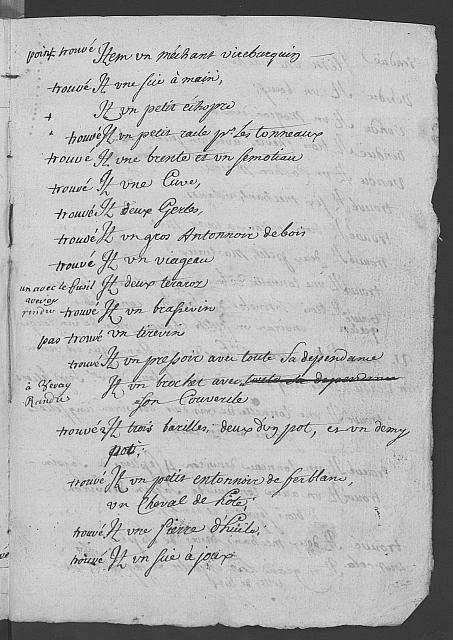 point trouvé Item un méchant vireburquin
trouvé It une sie à main,
+ It un petit echopre
trouvé It un petit racle pr. les tonneaux
trouvé It une brente et un semotiau
trouvé It une Cuve,
trouvé It deux Gerles,
trouvé It un gros Antonnoir de bois
trouvé It un viageau
un avec le fusil It deux teraror
rendu trouvé It un brassevin
pas trouvé un terevin
trouvé It un pressoir avec toute sa dependance
à It un brochet avec toute sa dependance
Randu son Couvercle
trouvé 2 It trois barilles, deux d'un pot, et un demy
pot;
trouvé It un petit entonnoir de ferblanc,
un Cheval de
trouvé It une pierre d'huile;
trouvé It un sie à joux